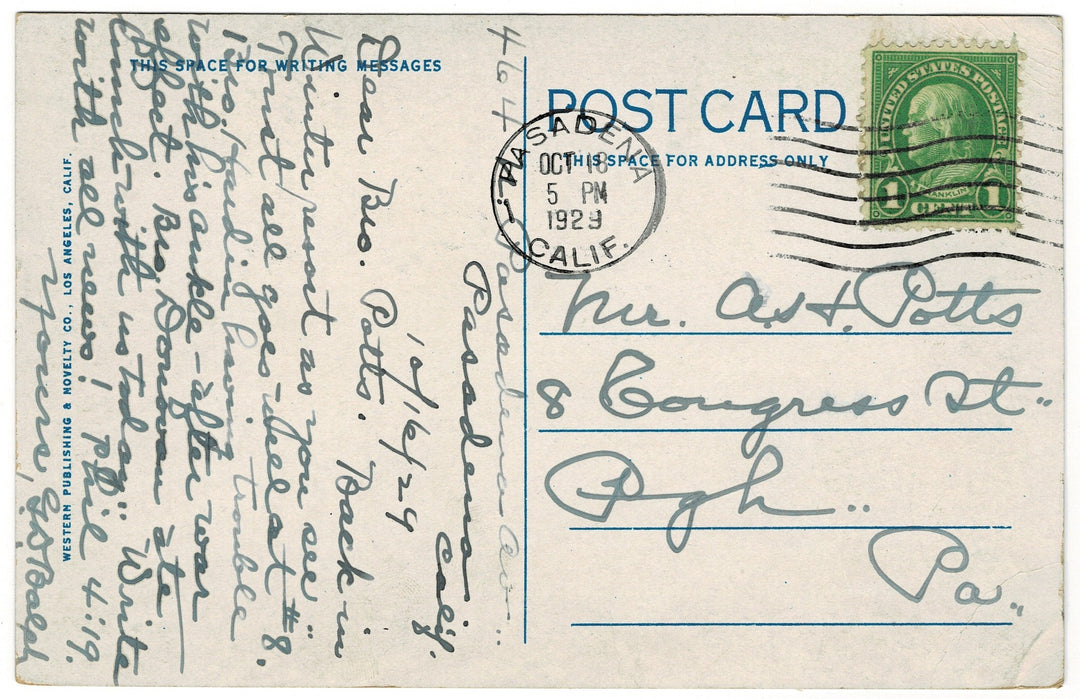 THIS SPACE FOR WRITING MESSAGES
464 N. Pasadena Av.
Pasadena
Calif.
10/16/29
Dear Bro. Potts. Back in
Winter resort as you see.
Trust all goes well at #8.
Bro. Hardin having trouble
with his ankle - after war
effect. Bro. Donovan ate
lunch with us today. Write
with all news! Phil 4:19.
Yours,
WESTERN PUBLISHING & NOVELTY CO., LOS ANGELES, CALIF.
POST CARD
THIS SPACE FOR ADDRESS ONLY
PASADENA
OCT 18
5 PM
1929
CALIF.
UNITED STATES POSTAGE
FRANKLIN
1 CENT 1
Mr. A. H. Potts
8 Congress St.
Pgh.
Pa.